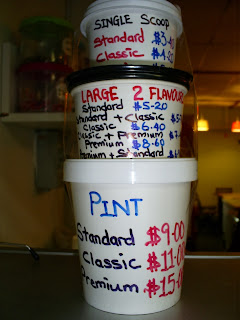 SINGLE SCOOP
Standard
Classic
LARGE 2 FLAVOUR
Standard $5-20
Standard + Classic
Classic $6.40
Classic + Premium
Premium $8.60
Premium + Standard
PINT
Standard $9.00
Classic $11.00
Premium $15.